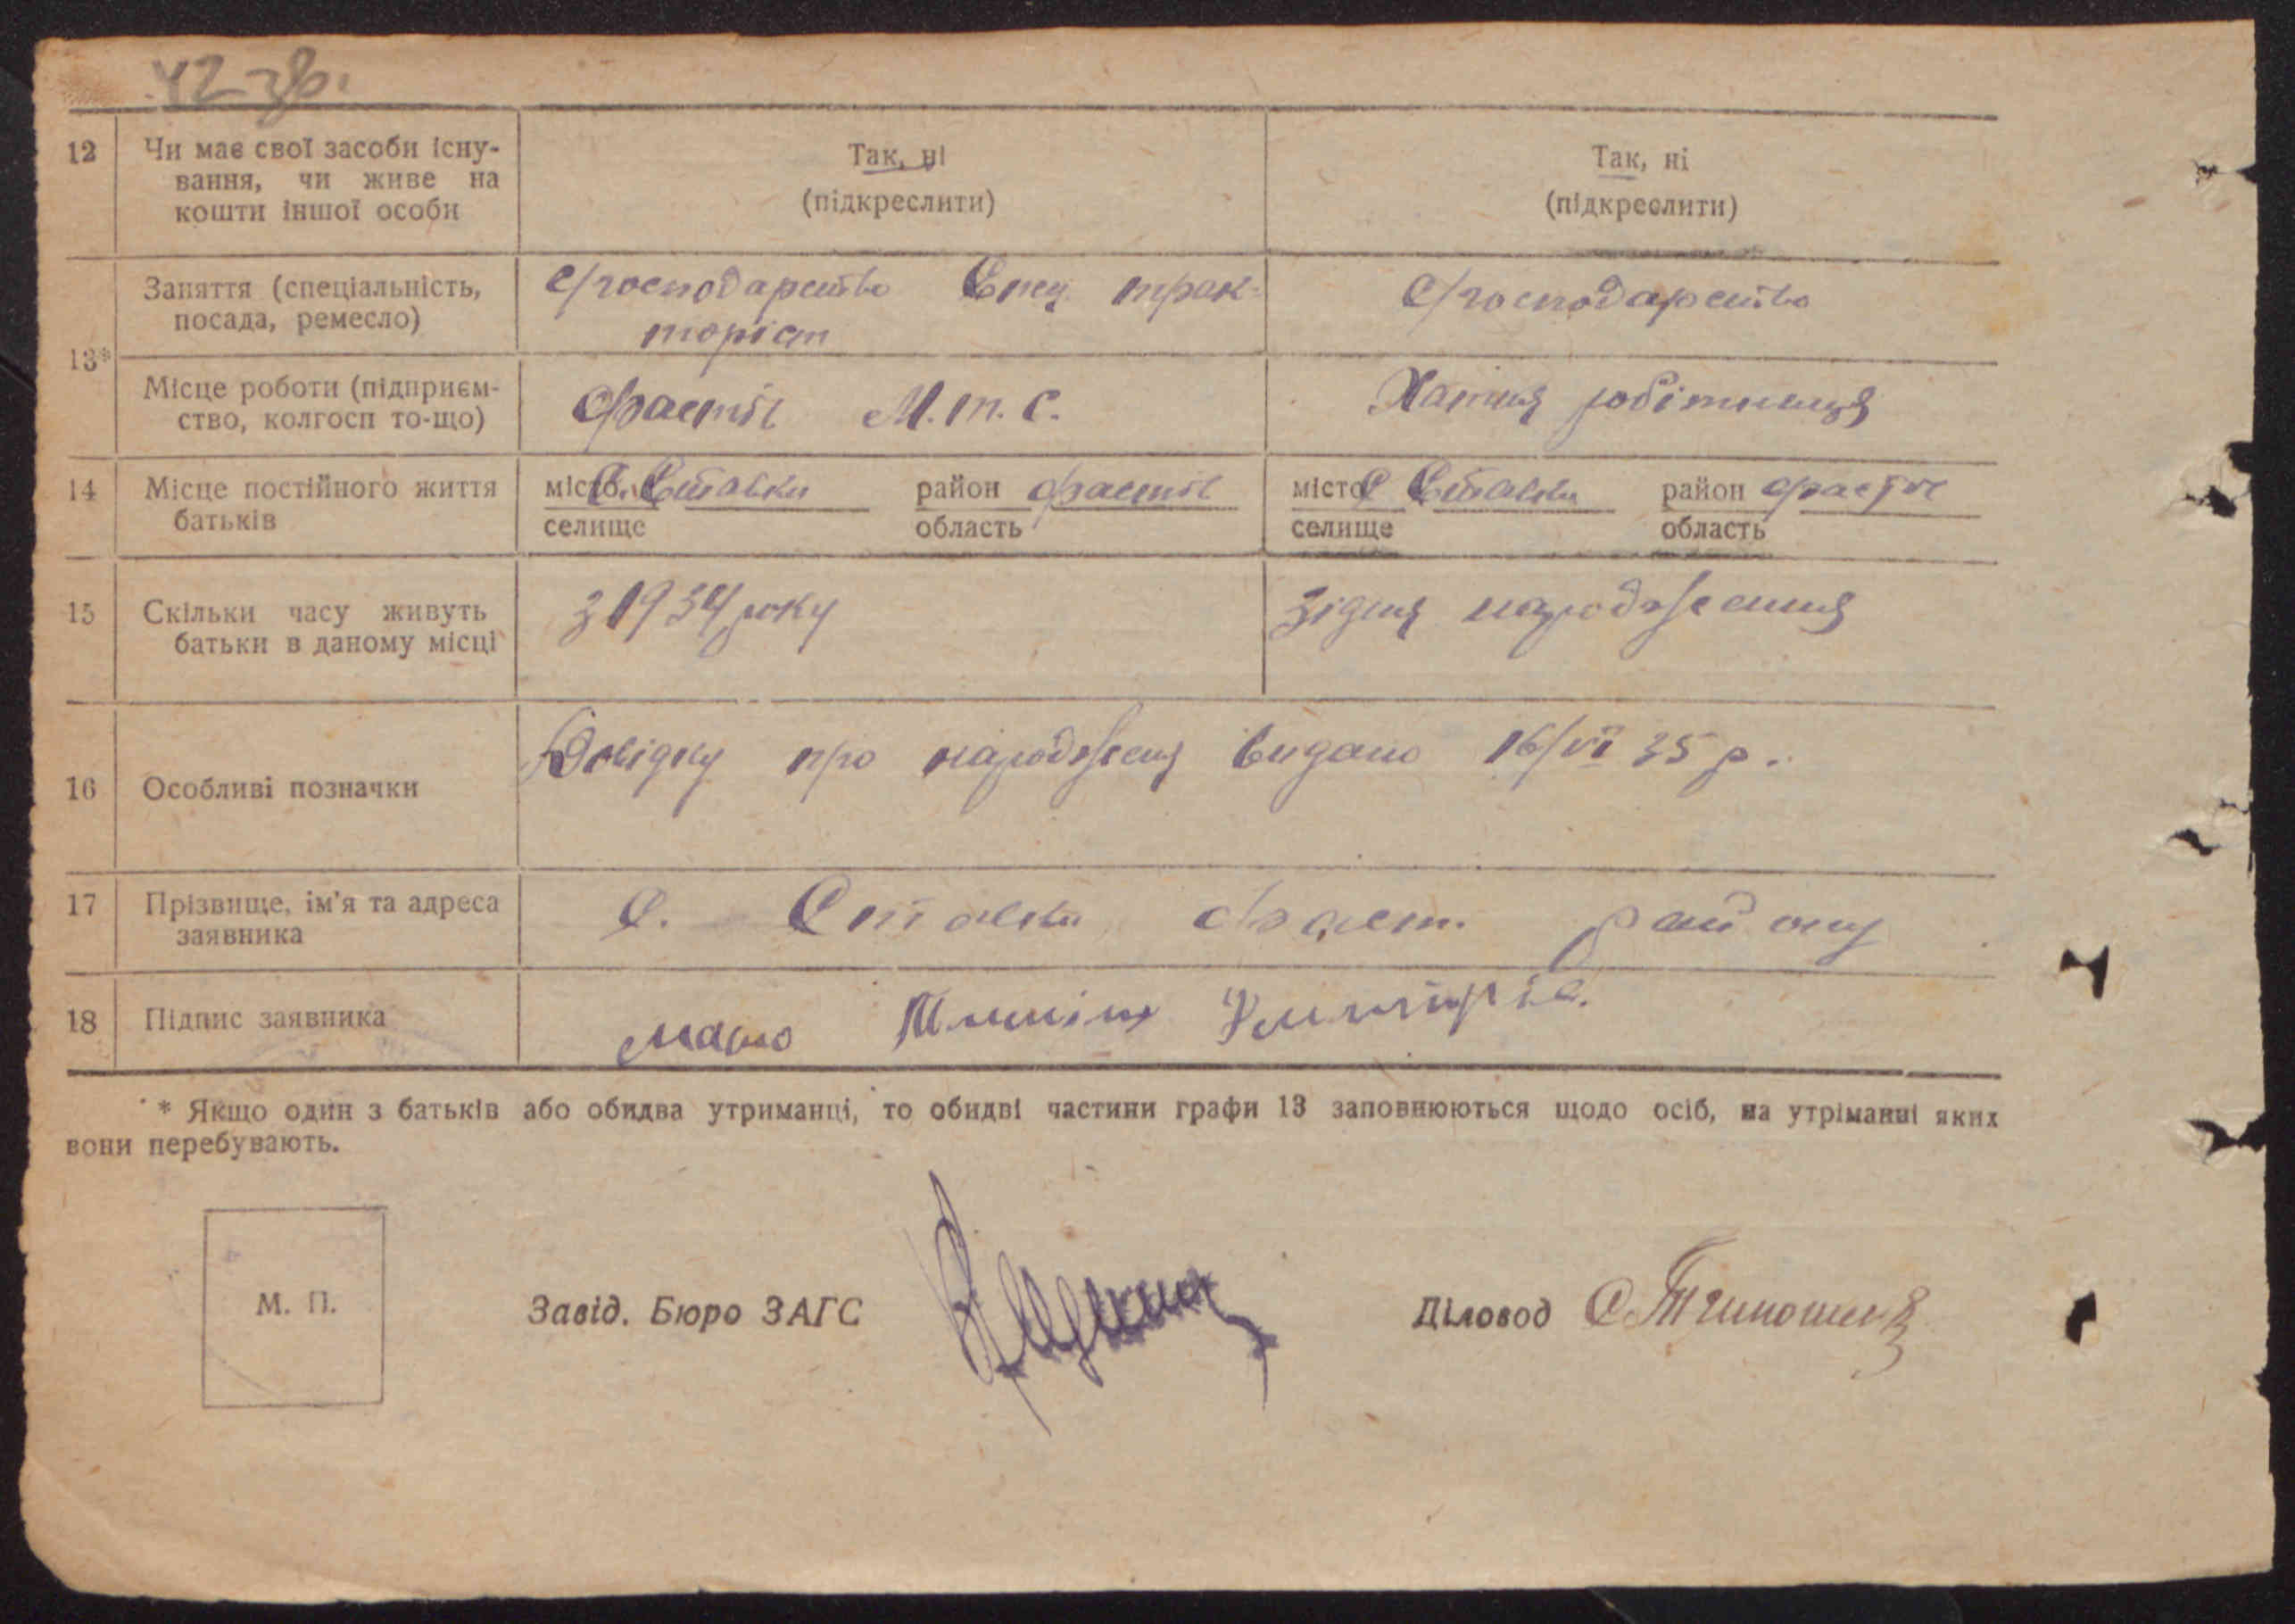 42 зв.
12 Чи має свої засоби існу- Так, ні Так, ні
вання, чи живе на (підкреслити) (підкреслити)
кошти іншої особи
13* Заняття (спеціальність, С/господарство Спец. трак- С/господарство
посада, ремесло) торіст
Місце роботи (підприєм- Фастів М.т.с. Хатня робітниця
ство, колгосп то-що)
14 Місце постійного життя місто С. Ставки район Фастів місто С Ставки район Фастів
батьків селище область селище область
15 Скільки часу живуть з 1934 року зі дня народження
батьки в даному місці
16 Особливі позначки Довідку про народженя видано 16/VI 35 р.
17 Прізвище, ім'я та адреса С. Ставки Фаст. району
заявника
18 Підпис заявника
* Якщо один з батьків або обидва утриманці, то обидві частини графи 13 заповнюються щодо осіб, на утріманні яких
вони перебувають.
М. П. Завід. Бюро ЗАГС Діловод